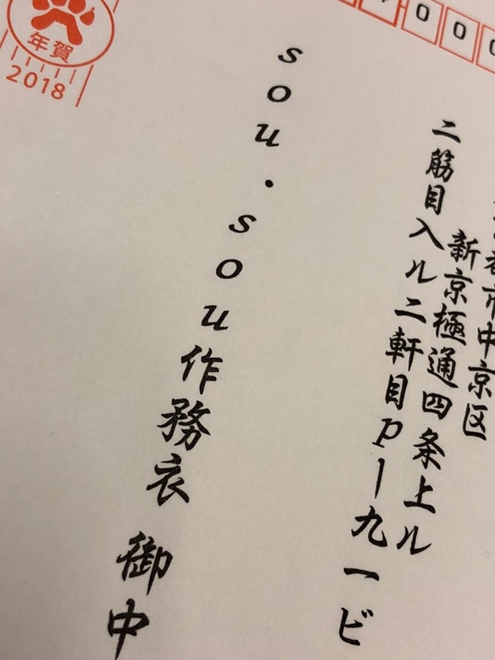 00
市中京区
新京極通四条上ル
二筋目入ル二軒目pー九一ビ
sou・sou作務衣 御中
年賀
2018